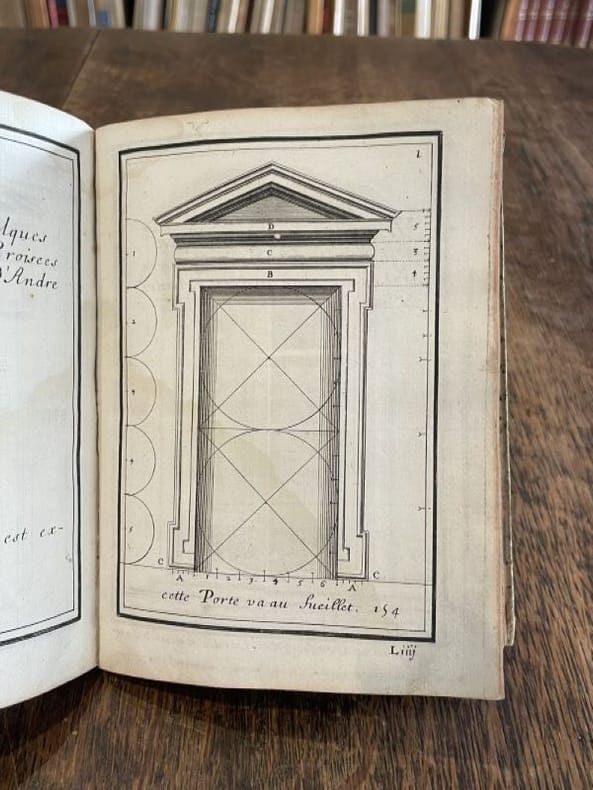 lques
roisees
d'Andre
est ex-
1
D
C
B
5
3
4
1
2
3
4
5
C
A
1
2
3
4
5
6
A
C
cette Porte va au fueillet. 154
Liiij